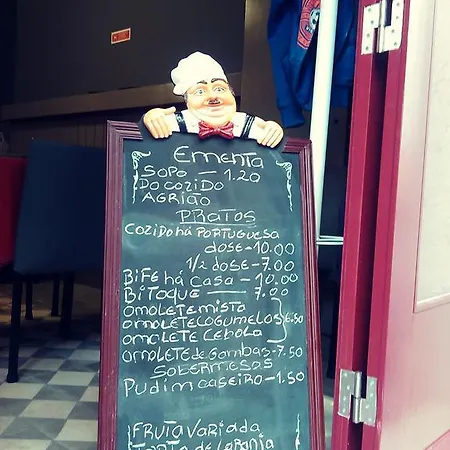 EMENTA
SOPO — 1.20
DO COZIDO
AGRIÃO
PRATOS
COZIDO há PORTUGUESA
dose - 10.00
1/2 dose - 7.00
BIFE há CASA — 10.00
BITOQUE — 7.00
OMOLETE MISTA
OMOLETE COGUMELOS 6.50
OMOLETE CEBOLA
OMOLETE de GOMBAS - 7.50
SOBERMESAS
PUDIM CASEIRO - 1.50
FRUTA VARIADA
TORTA de LARANJA